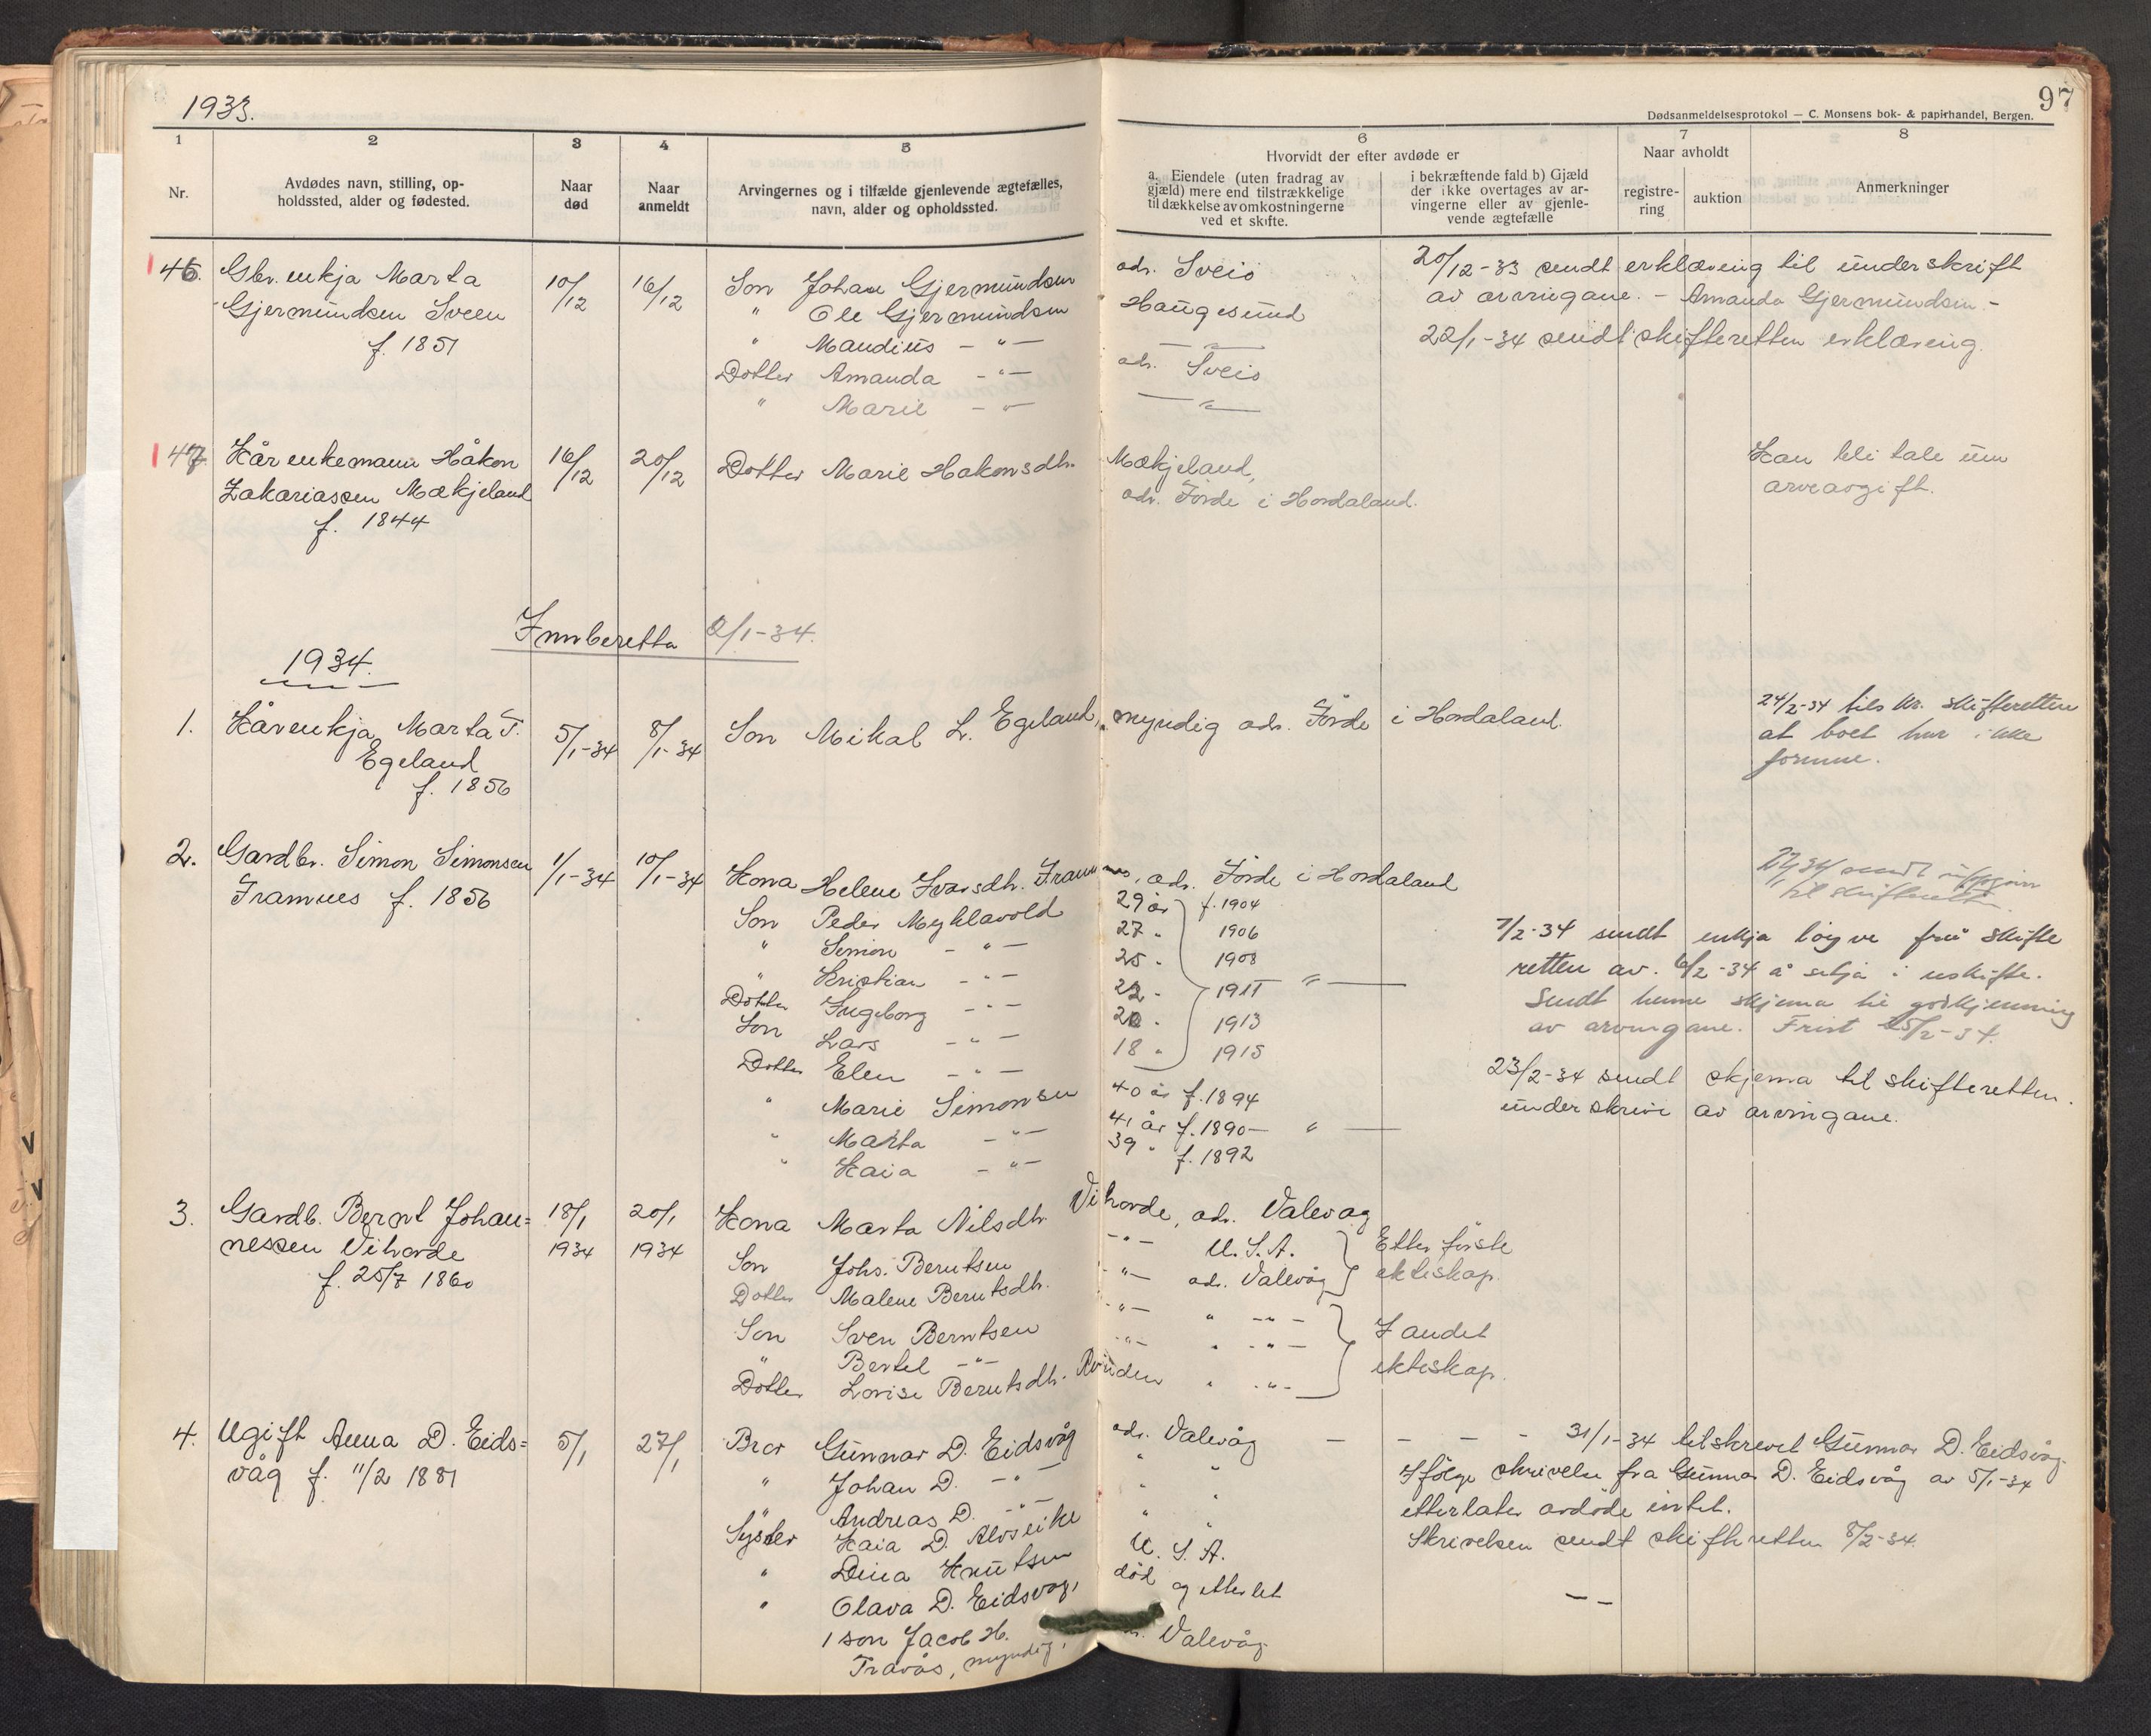 1933.
97
Dødsanmeldelsesprotokol — C. Monsens bok- & papirhandel, Bergen.
1
2
3
4
5
6
7
8
Nr.
Avdødes navn, stilling, op-
holdssted, alder og fødested.
Naar
død
Naar
anmeldt
Arvingernes og i tilfælde gjenlevende ægtefælles,
navn, alder og opholdssted.
Hvorvidt der efter avdøde er
a. Eiendele (uten fradrag av
gjæld) mere end tilstrækkelige
til dækkelse av omkostningerne
ved et skifte.
i bekræftende fald b) Gjæld
der ikke overtages av ar-
vingerne eller av gjenle-
vende ægtefælle
Naar avholdt
registre-
ring
auktion
Anmerkninger
46. Gbr. enkja Marta
Gjermundsen Sveen
f. 1851
10/12
16/12
Son Johan Gjermundsen adr. Sveio
" Ole Gjermundsen Haugesund
" Mandius - " - - " -
Dotter Amanda - " - adr. Sveio
" Marie - " - - " -
20/12-33 sendt erklæring til underskrift
av arvingane. - Amanda Gjermundsen -
22/1-34 sendt skifteretten erklæring.
47 Kårenkemann Håkon
Zakariassen Mækjeland
f. 1844
16/12
20/12
Dotter Marie Hakonsdtr. Mækjeland,
adr. Førde i Hordaland.
Kan bli tale um
arveavgift.
Innberetta 2/1-34.
1934.
1. Kårenkja Marta T.
Egeland
f. 1856
5/1-34
8/1-34
Son Mikal L. Egeland, myndig adr. Førde i Hordaland.
24/2-34 tils kr. skifteretten
at boet har ikke
formue.
2. Gardbr. Simon Simonsen
Framnes f. 1856
1/1-34
10/1-34
Kona Helene Ivarsdtr. Framnes, adr. Førde i Hordaland
Son Peder Myklavold 29 år f. 1904
" Simon - " - 27 " 1906
" Kristian - " - 25 " 1908
Dotter Ingeborg - " - 22 " 1911 " —
Son Lars - " - 20 " 1913
Dotter Elen - " - 18 " 1915
" Marie Simonsen 40 år f. 1894
" Marta - " - 41 år f. 1890 — " —
" Kaia - " - 39 " f. 1892
sendt
til skifteretten
7/2-34 sendt enkja løyve frå skifte
retten av. 6/2-34 å sitja i uskifte.
Sendt henne skjema til godkjenning
av arvingane. Frist 25/2-34.
23/2-34 sendt skjema til skifteretten.
underskrive av arvingane.
3. Gardb. Bernt Johan=
nessen Vihovde
f. 25/7 1860
18/1
1934
20/1
1934
Kona Marta Nilsdtr. Vihovde, adr. Valevåg
Son Johs. Berntsen - " - U.S.A.
Dotter Malene Berntsdtr. - " - adr. Valevåg
Etter første
ekteskap.
Son Sven Berntsen - " - " - " -
" Bertel - " - - " - " - " -
Dotter Lovise Berntsdtr. " - " -
I andet
ekteskap.
4. Ugift Anna D. Eids=
våg f. 11/2 1881
5/1
27/1
Bror Gunnar D. Eidsvåg adr. Valevåg
" Johan D. - " - " "
" Andreas D. - " - " "
Syster Kaia D. Alvseike " "
" Dina Knutsen U.S.A.
" Olava D. Eidsvåg, død og etterlet
1 son Jacob H.
Travås, myndig, Valevåg.
- - - - 31/1-34 tilskrevet Gunnar D. Eidsvåg.
Ifølge skrivelse fra Gunnar D. Eidsvåg av 5/1-34
etterlater avdøde intet.
Skrivelsen sendt skifteretten 8/2-34.
- -